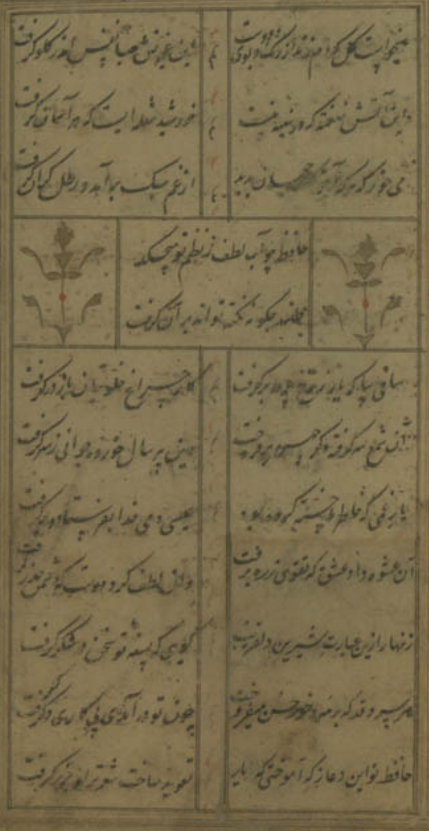 میخواست گل که دم زند از رنگ و بوی دوست
از غیرت صبا نفسش اندر دهان گرفت
این آتش نهفته که در سینه منست
خورشید شعله ایست که در آسمان گرفت
می خور که هر که آخر جهان بدید
از غم سبک برآمد و رطل گران گرفت
حافظ چو آب لطف ز نظم تو میچکد
چگونه نکته تواند بر آن گرفت
ساقی بیا که یار ز رخ پرده برگرفت
کار چراغ خلوتیان باز در گرفت
آن شمع سر گرفته دگر چهره برفروخت
وین پیر سال خورده جوانی ز سر گرفت
بار غمی که خاطر ما خسته کرده بود
عیسی دمی خدا بفرستاد و برگرفت
آن عشوه داد عشق که تقوی ز ره برفت
وان لطف کرد دوست که دشمن حذر گرفت
زنهار ازین عبارت شیرین دلفریب
گویی که پسته تو سخن در شکر گرفت
هر سرو قد که بر مه و خور حسن میفروخت
چون تو در آمدی پی کاری دگر گرفت
حافظ تو این دعا ز که آموختی که یار
تعویذ ساخت شعر ترا و بزر گرفت